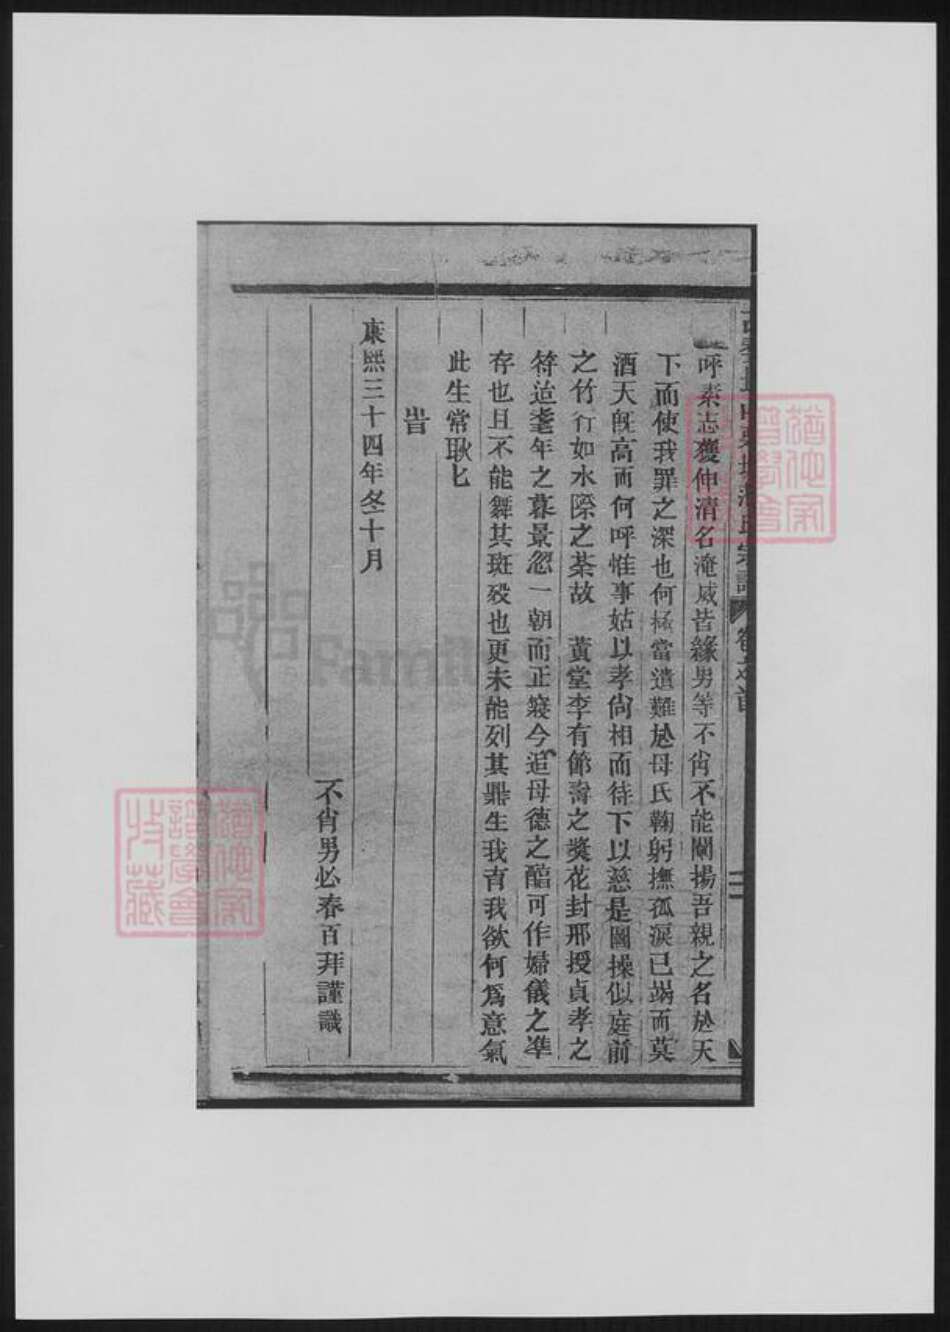 呼素志獲伸清名淹威皆緣男等不肖不能闡揚吾親之名於天
下而使我罪之深也何極當遺難於母氏鞠躬撫孤淚已竭而莫
酒天旣高而何呼惟事姑以孝尙相而待下以慈是圖操似庭前
之竹行如水際之荼故　黃堂李有節壽之獎花封邢授貞孝之
符迨耄年之暮景忽一朝而正寢今追母德之醕可作婦儀之準
存也且不能舞其斑歿也更未能列其鼎生我育我欲何爲意氣
此生常耿匕
旹
康熙三十四年冬十月
不肖男必春百拜謹識